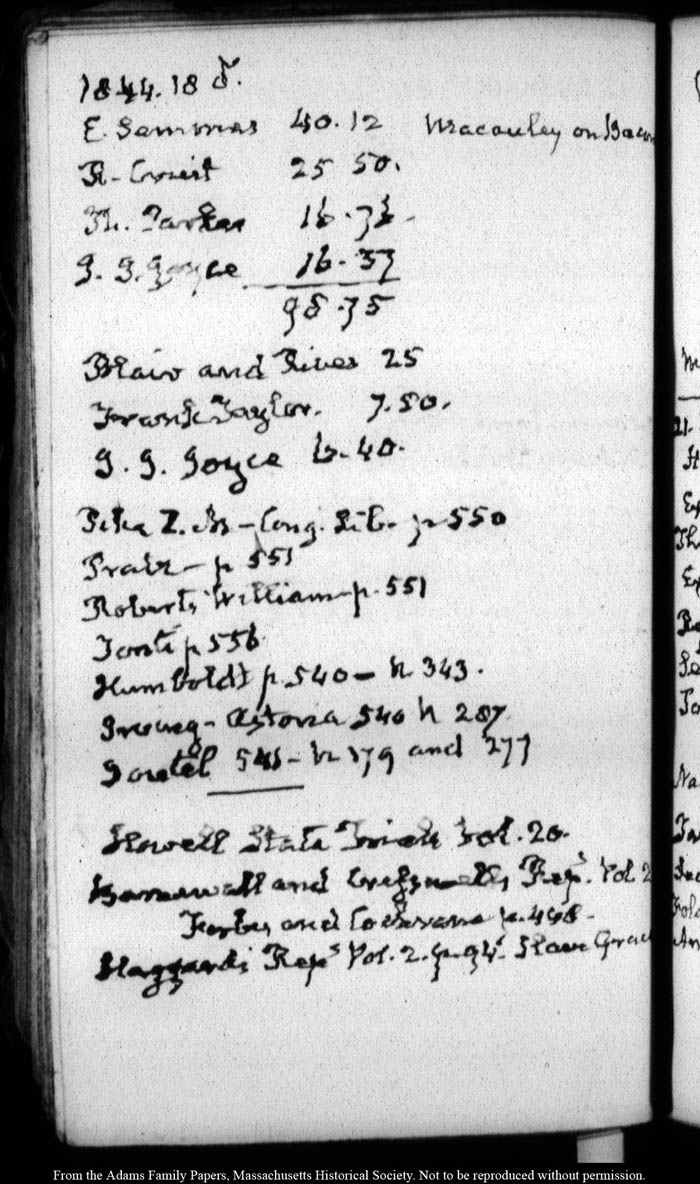 1844. 18 5.
E. Semmes 40.12 Macauley on Bacon
R- Cruit 25 50.
Th. Parker 16.76.
J. J. Joyce 16.37
98.75
Blair and Rives 25
Frank Taylor. 7.50.
J. J. Joyce 6.40.
Pike Z. M- Cong. Lib. p 550
Pratz- p 551
Roberts William p. 551
Tonti p 556
Humboldt p. 540- N 343.
Irving- Astoria 540 N 287
Joutel 541- N 179 and 277
Howell State Trials Vol. 20.
Barnewall and Cresswell's Rep.s Vol 2
Forbes and Cochrane p. 448-
Haggard's Reps Vol. 2. p. 94. Slave Grace
21.
Na
An
From the Adams Family Papers, Massachusetts Historical Society. Not to be reproduced without permission.